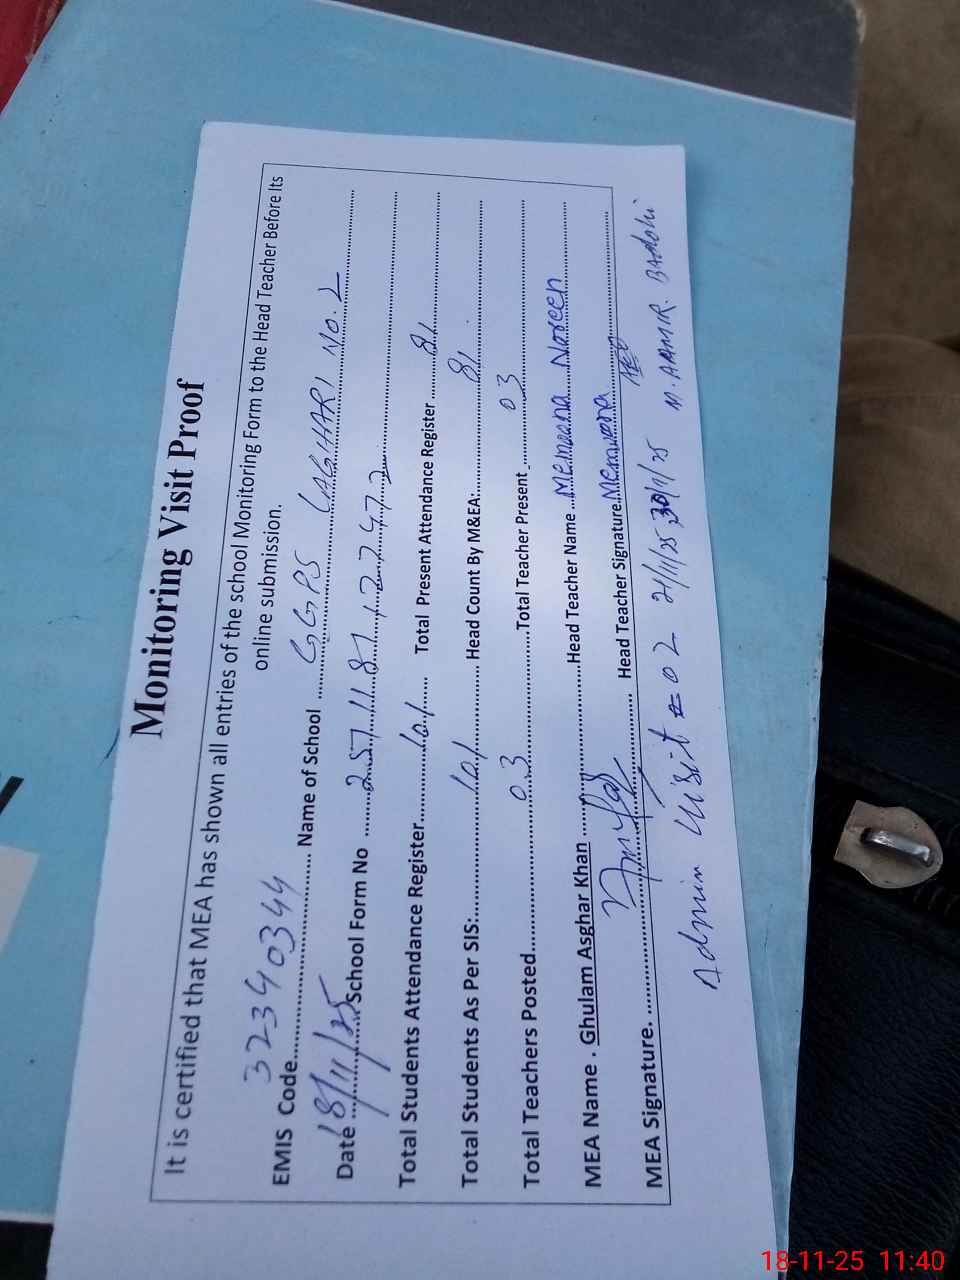 Monitoring Visit Proof
It is certified that MEA has shown all entries of the school Monitoring Form to the Head Teacher Before Its
online submission.
EMIS Code 32340344 Name of School GGPS LAGHARI NO. 2
Date 18/11/25 School Form No
Total Students Attendance Register 101 Total Present Attendance Register 81
Total Students As Per SIS: 101 Head Count By M&EA: 81
Total Teachers Posted 03 Total Teacher Present 03
MEA Name . Ghulam Asghar Khan Head Teacher Name Memoona Noreen
MEA Signature. Head Teacher Signature. Memoona
AEO
Admin Visit = 02 21/11/25, 30/11/25 M. AAMIR BADOHI
18-11-25 11:40